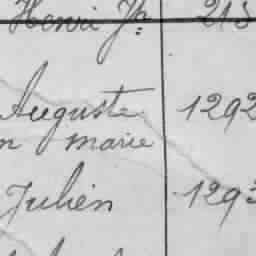 Henri Jh 213
Auguste 1292
n marie
Julien 1293